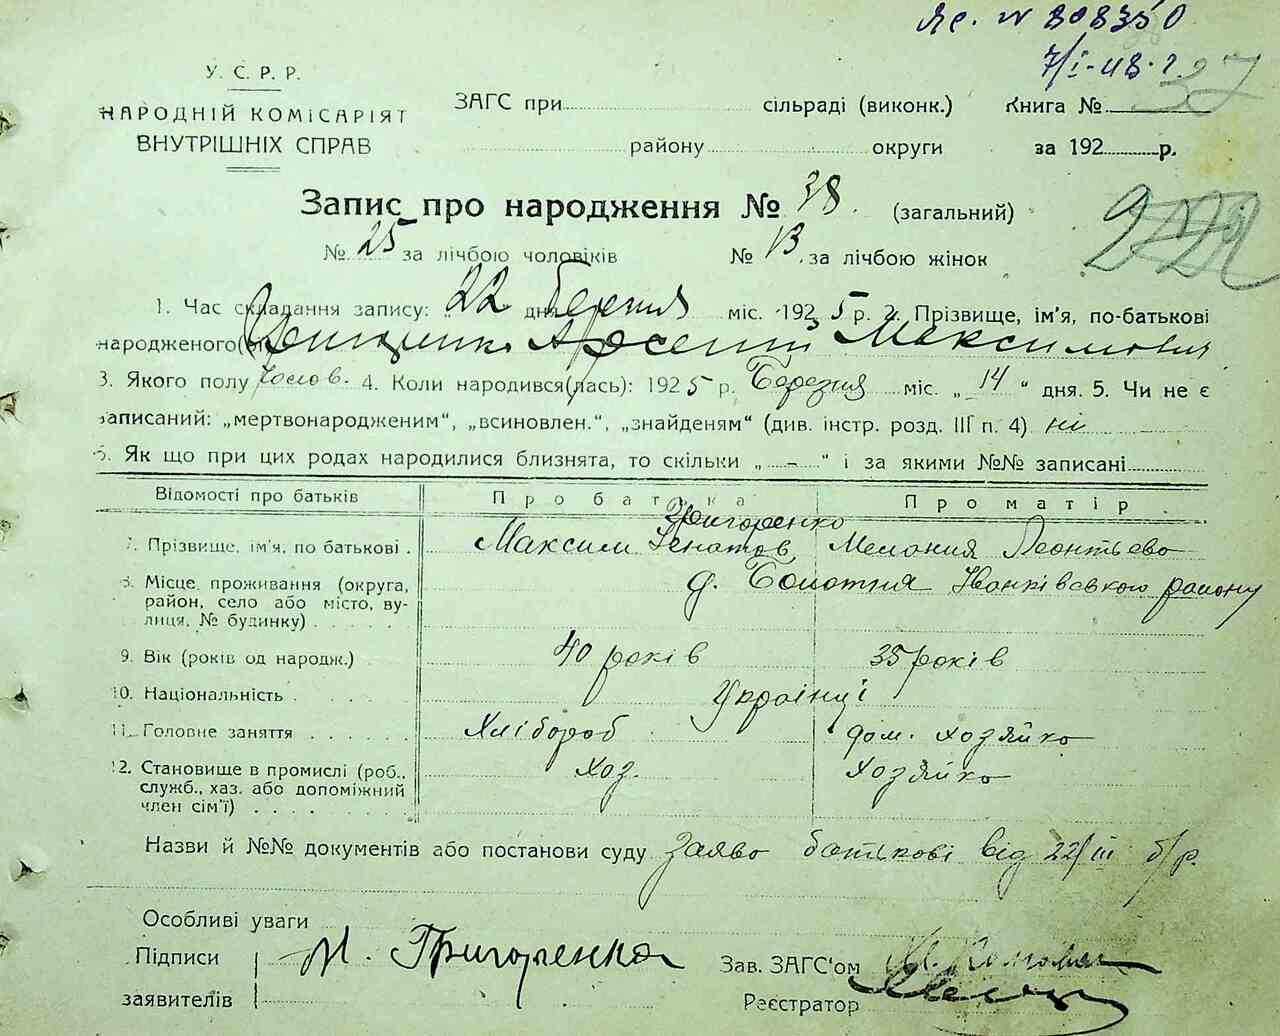 Яс. № 808350
7/I-48 г.
37
У. С. Р. Р.
НАРОДНІЙ КОМІСАРІЯТ
ВНУТРІШНІХ СПРАВ
ЗАГС при сільраді (виконк.) Книга №
району округи за 192 р.
Запис про народження № 38. (загальний)
№ 25 за лічбою чоловіків № 13. за лічбою жінок
1. Час складання запису: 22 дня Березня міс. 192 5 р. 2. Прізвище, ім'я, по-батькові
народженого Арсентій Максимович
3. Якого полу чолов. 4. Коли народився(лась): 192 5 р. Березня міс. „ 14 " дня. 5. Чи не є
записаний: „мертвонародженим", „всиновлен.", „знайденям" (див. інстр. розд. III п. 4) ні
6. Як що при цих родах народилися близнята, то скільки „ - " і за якими №№ записані
Відомості про батьків Про батька Про матір
Григоренко
7. Прізвище, ім'я, по батькові . Максим Гнатов, Мелания Леонтьева
8. Місце проживання (округа, район, село або місто, вулиця, № будинку) . . . . . . с. Болотня Іванківського району
9. Вік (років од народж.) 40 років 35 років
10. Національність . Українці
11. Головне заняття . . . . . Хлібороб дом. хозяйка
12. Становище в промислі (роб., служб., хаз. або допоміжний член сім'ї) . . . . . хоз. хозяйка
Назви й №№ документів або постанови суду Заява батькові від 22/III б/р.
Особливі уваги
Підписи М. Григоренко Зав. ЗАГС'ом
заявителів Реєстратор